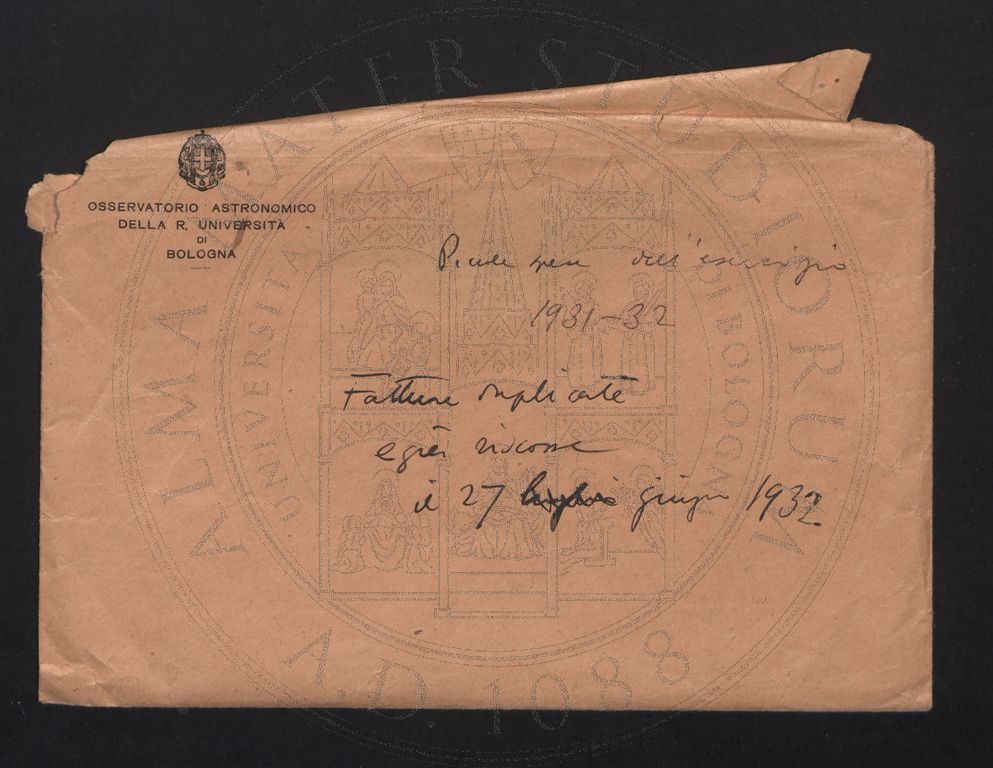 OSSERVATORIO ASTRONOMICO
DELLA R. UNIVERSITÀ
DI
BOLOGNA
Piccole spese dell'esercizio
1931-32
Fatture duplicate
e già riscosse
il 27 luglio giugno 1932
ALMA MATER STUDIORUM
UNIVERSITÀ DI BOLOGNA
A.D. 1088